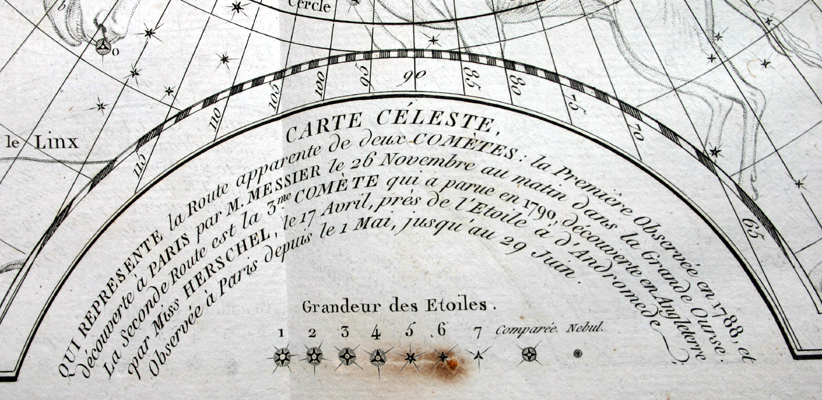 Cercle
b
o
le Linx
115 110 105 100 95 90 85 80 75 70 65
CARTE CÉLESTE,
QUI REPRESENTE la Route apparente de deux COMÈTES: la Première Observée en 1788, et
découverte à PARIS par M. MESSIER le 26 Novembre au matin dans la Grande Ourse.
La Seconde Route est la 3.me COMÈTE qui a parue en 1790, découverte en Angleterre
par Miss HERSCHEL, le 17 Avril, près de l'Etoile δ d'Andromede
Observée à Paris depuis le 1 Mai, jusqu'au 29 Juin.
Grandeur des Etoiles.
1 2 3 4 5 6 7 Comparée. Nebul.